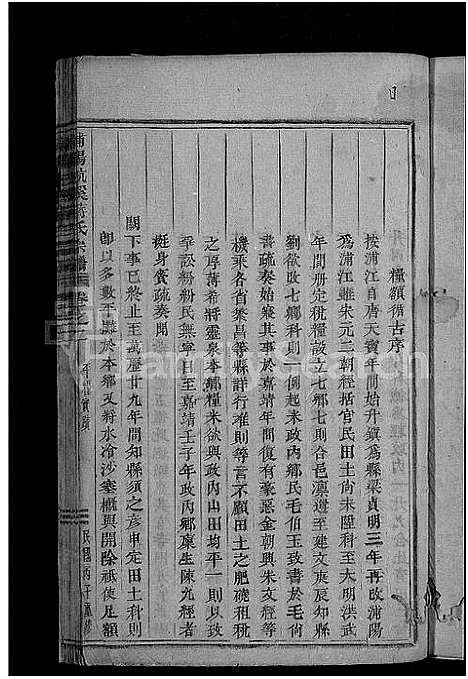 糧額循古序
按浦江自唐天寶年間始升鎮爲縣梁貞明三年再改浦陽
爲浦江雖宋元二朝經括官民田土尚未陞科至大明洪武
年間册定稅糧設立七鄉七則合邑凛遵至建文庚辰知縣
劉欲敗七鄉科則一體起科未政內鄉民毛伯玉致書於毛尚
書疏奏始寢其事於嘉靖年間復有豪惡金朝興朱文經等
機乘各省繁昌等縣詳行难則等言不顧田土之肥磽租稅
之厚薄希將靈泉本鄉糧米欲與政內山田均平一則以致
爭訟紛紛民無寧日至嘉靖壬子年政內鄉凛生陳九經者
挺身實疏奏聞
闕下事已終止至萬歷廿九年間知縣須之彥申定田土科則
卽以多數平灑於本鄉又將水冷沙塞概與開除祗使足額
浦陽
蔣氏宗譜
民國丙子重修